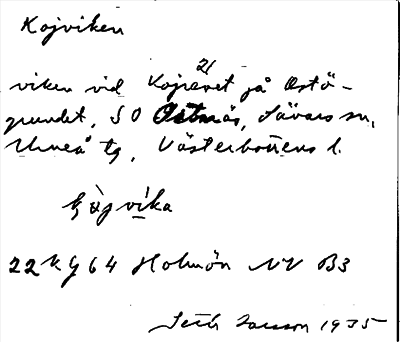 Kojviken
21
viken vid Kojrevet på Ostö-
grundet, SO Ostnäs, Sävars sn,
Umeå tg, Västerbottens l.
kòjvika
22 K g 64 Holmön NV B3
Seth Jansson 1935